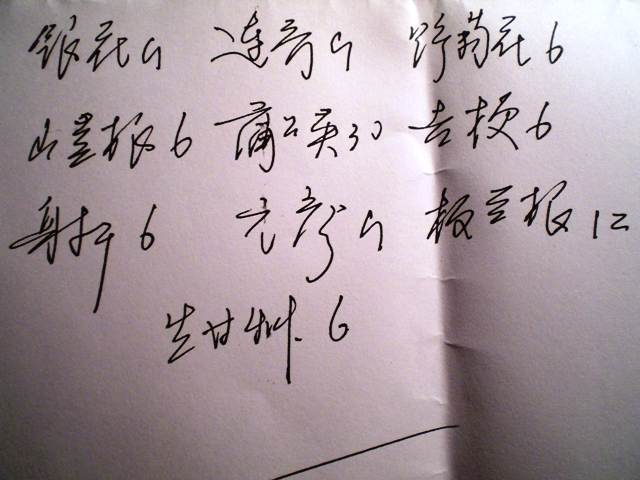 银花9 连乔9 野菊花6
山豆根6 蒲公英30 吉梗6
射干6 元参9 板兰根12
生甘草6